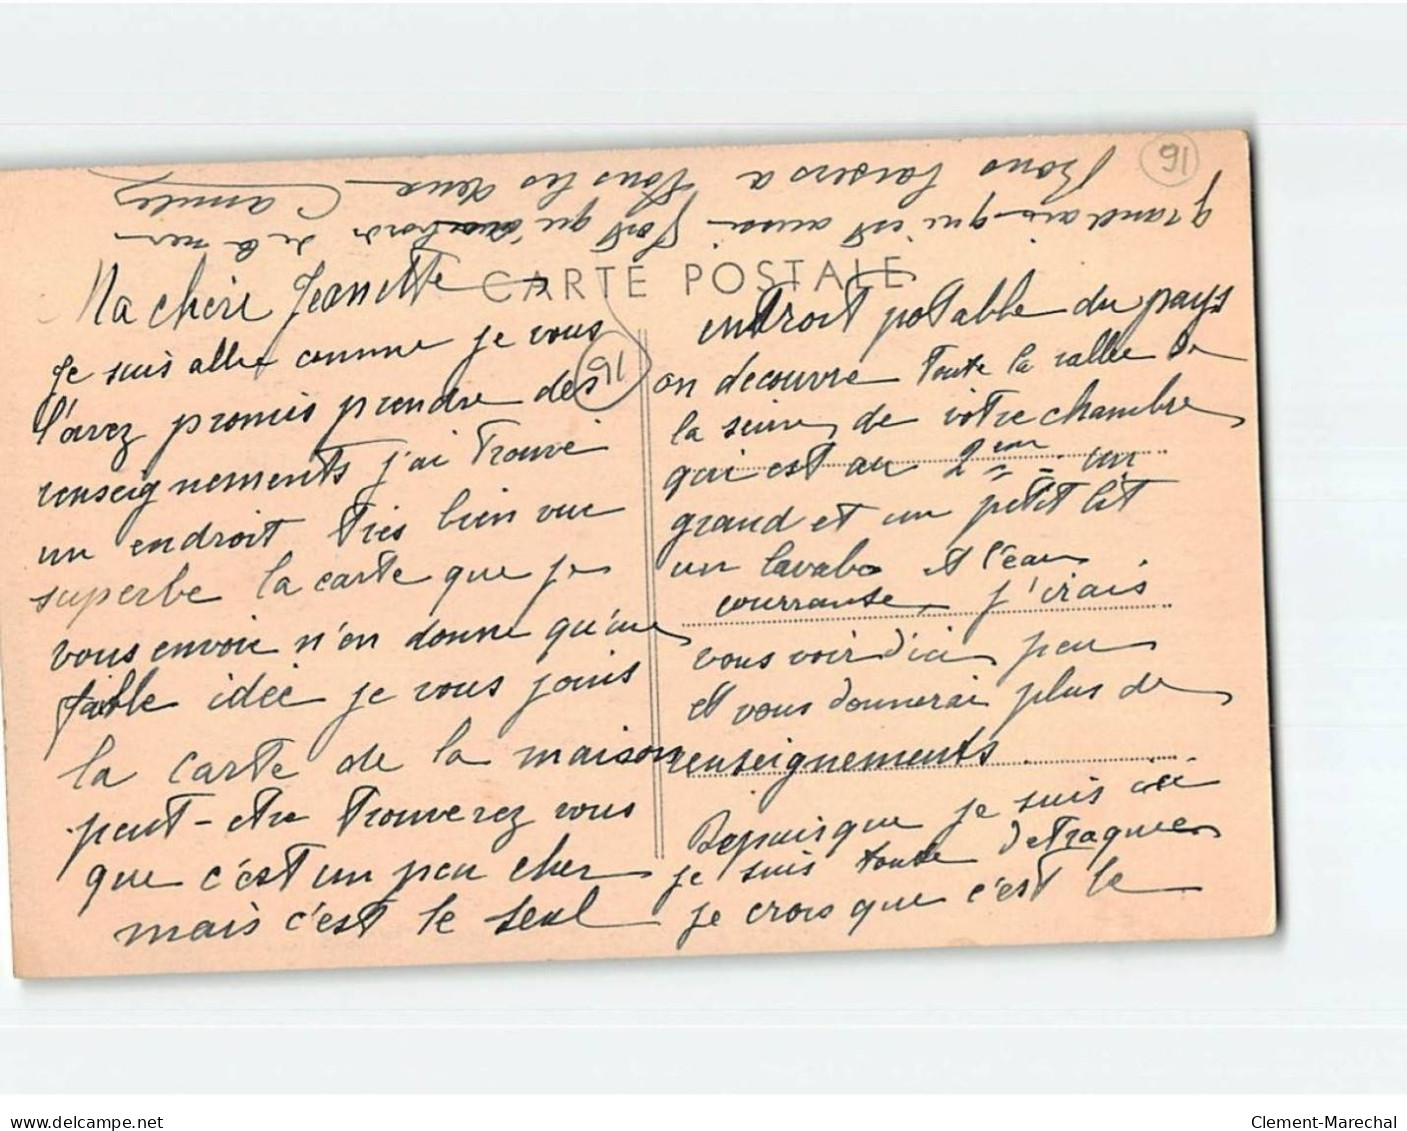 CARTE POSTALE
91
91
Ma chère Jeanette
Je suis allée comme je vous
l'avez promis prendre des
renseignements j'ai Trouvé
un endroit Très bien vue
superbe la carte que je
vous envoie n'en donne qu'une
faible idée je vous joins
la carte de la maison
peut-etre Trouverez vous
que c'est un peu cher
mais c'est le seul
endroit potable du pays
on decouvre Toute la vallee de
la seine, de votre chambre
qui est au 2eme un
grand et un petit lit
un lavabo et l'eau
courrante, j'irais
vous voir d'ici peu
et vous donnerai plus de
renseignements.
Depuis que je suis ici
je suis toute détraquée
je crois que c'est le
grand air qui est aussi fort qu'au bord de la mer
Bons baisers a tous les deux
Camille
www.delcampe.net
Clement-Marechal